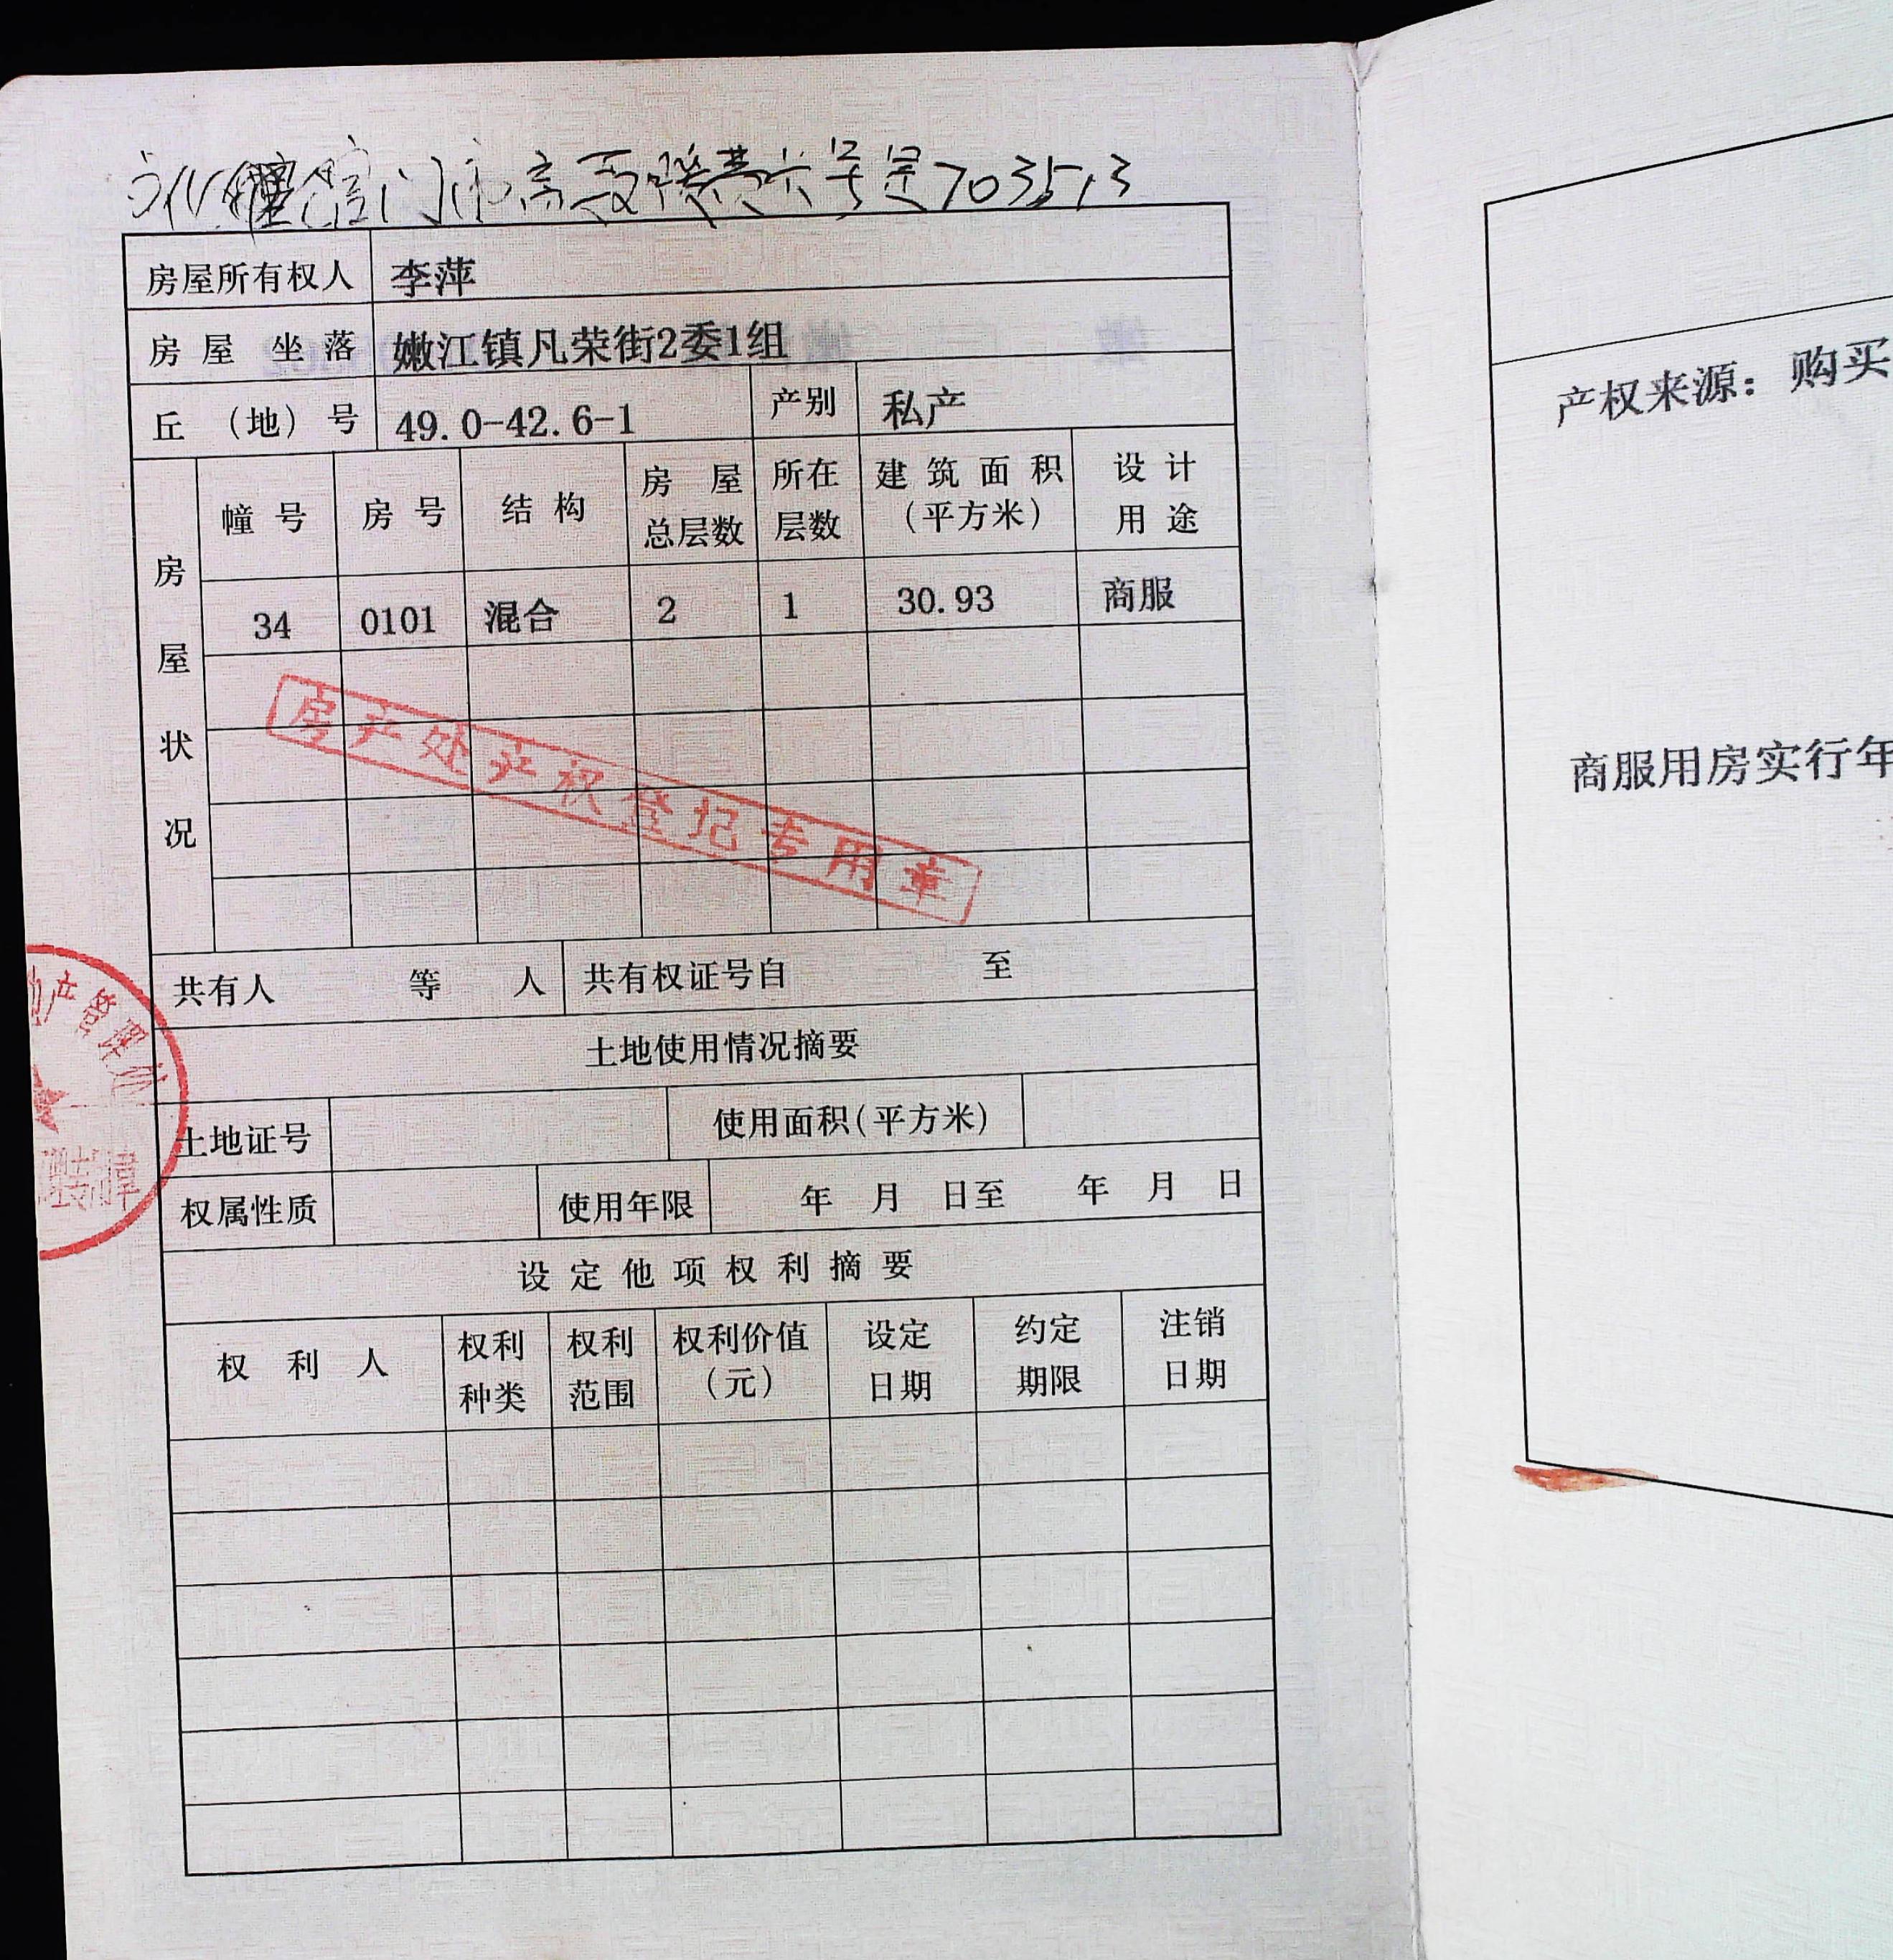 号是703513
房屋所有权人 李萍
房屋坐落 嫩江镇凡荣街2委1组
丘（地）号 49.0-42.6-1 产别 私产
房屋状况
幢号 房号 结构 房屋总层数 所在层数 建筑面积（平方米） 设计用途
34 0101 混合 2 1 30.93 商服
房产处产权登记专用章
共有人 等 人 共有权证号自 至
土地使用情况摘要
土地证号 使用面积(平方米)
权属性质 使用年限 年 月 日至 年 月 日
设定他项权利摘要
权利人 权利种类 权利范围 权利价值（元） 设定日期 约定期限 注销日期
产管理
产权来源：购买
商服用房实行年